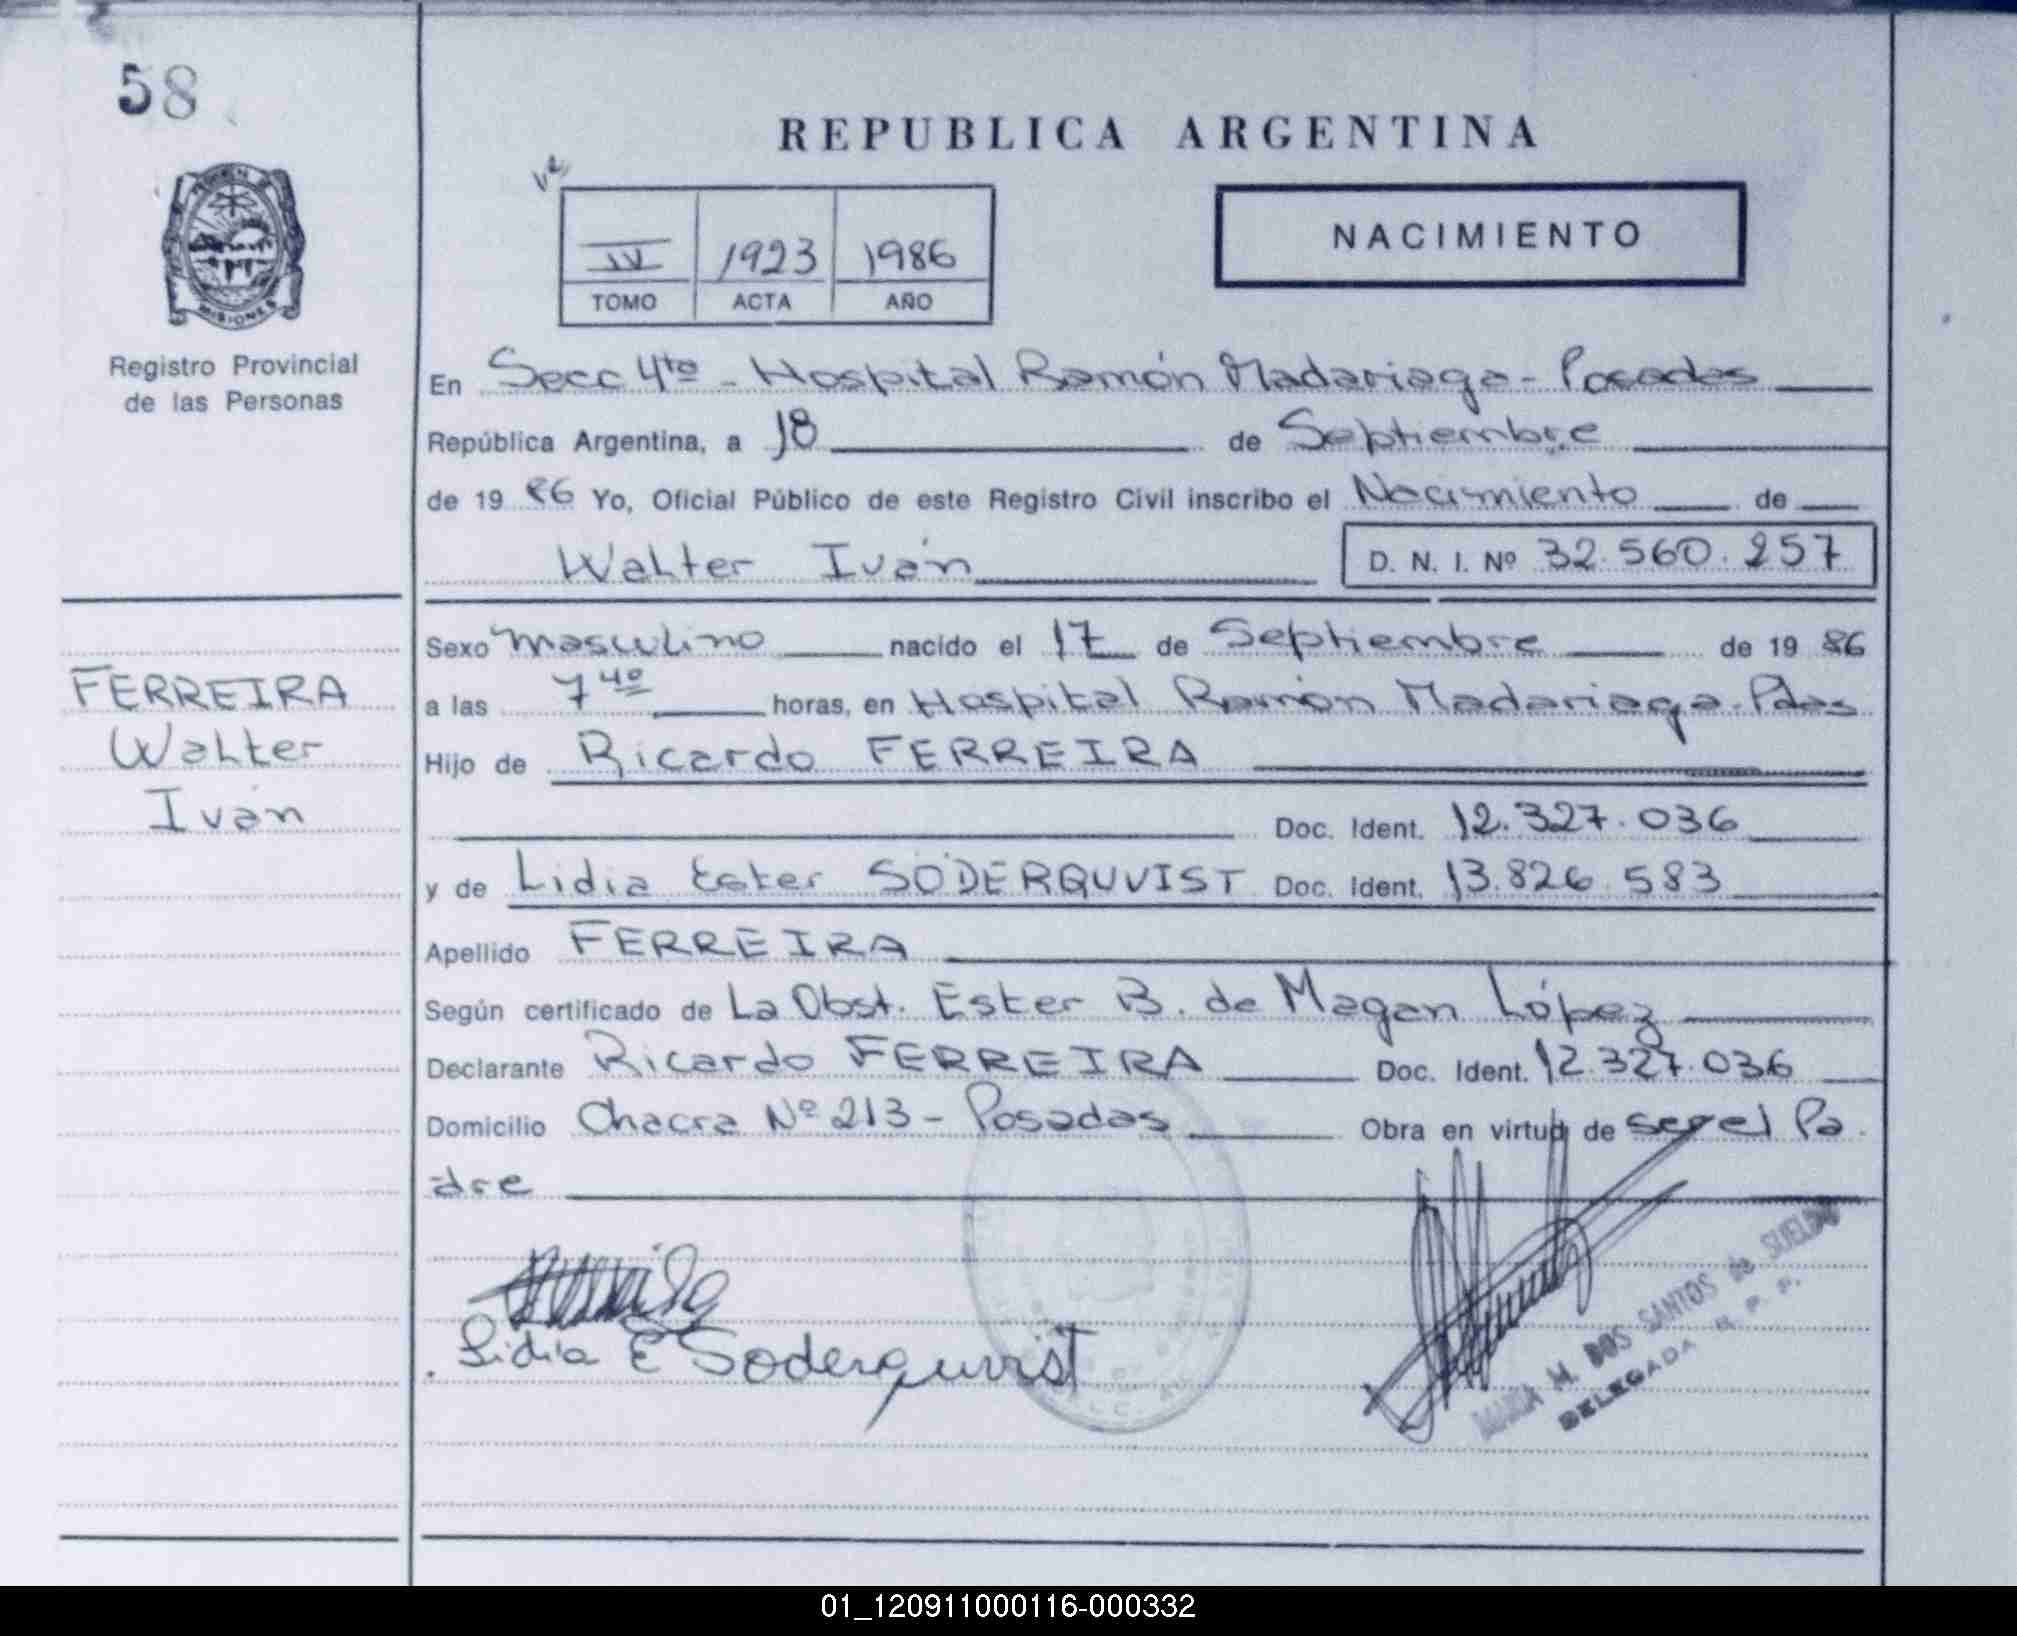 58
REPUBLICA ARGENTINA
IV 1923 1986
TOMO ACTA AÑO
NACIMIENTO
MISIONES
Registro Provincial
de las Personas
En Secc 4ta - Hospital Ramón Madariaga - Posadas
República Argentina, a 18 de Septiembre
de 19 86 Yo, Oficial Público de este Registro Civil inscribo el Nacimiento de
Walter Iván D. N. I. Nº 32.560.257
Sexo masculino nacido el 17 de Septiembre de 19 86
FERREIRA
Walter
Iván
a las 7 40 horas, en Hospital Ramón Madariaga - Pdas
Hijo de Ricardo FERREIRA
Doc. Ident. 12.327.036
y de Lidia Ester SÖDERQUVIST Doc. Ident. 13.826.583
Apellido FERREIRA
Según certificado de La Obst. Ester B. de Magan López
Declarante Ricardo FERREIRA Doc. Ident. 12.327.036
Domicilio Chacra Nº 213 - Posadas Obra en virtud de ser el Pa
dre
Lidia E Soderquvist
MARIA M. DOS SANTOS de SUELDO
DELEGADA R. P. P.
01_120911000116-000332